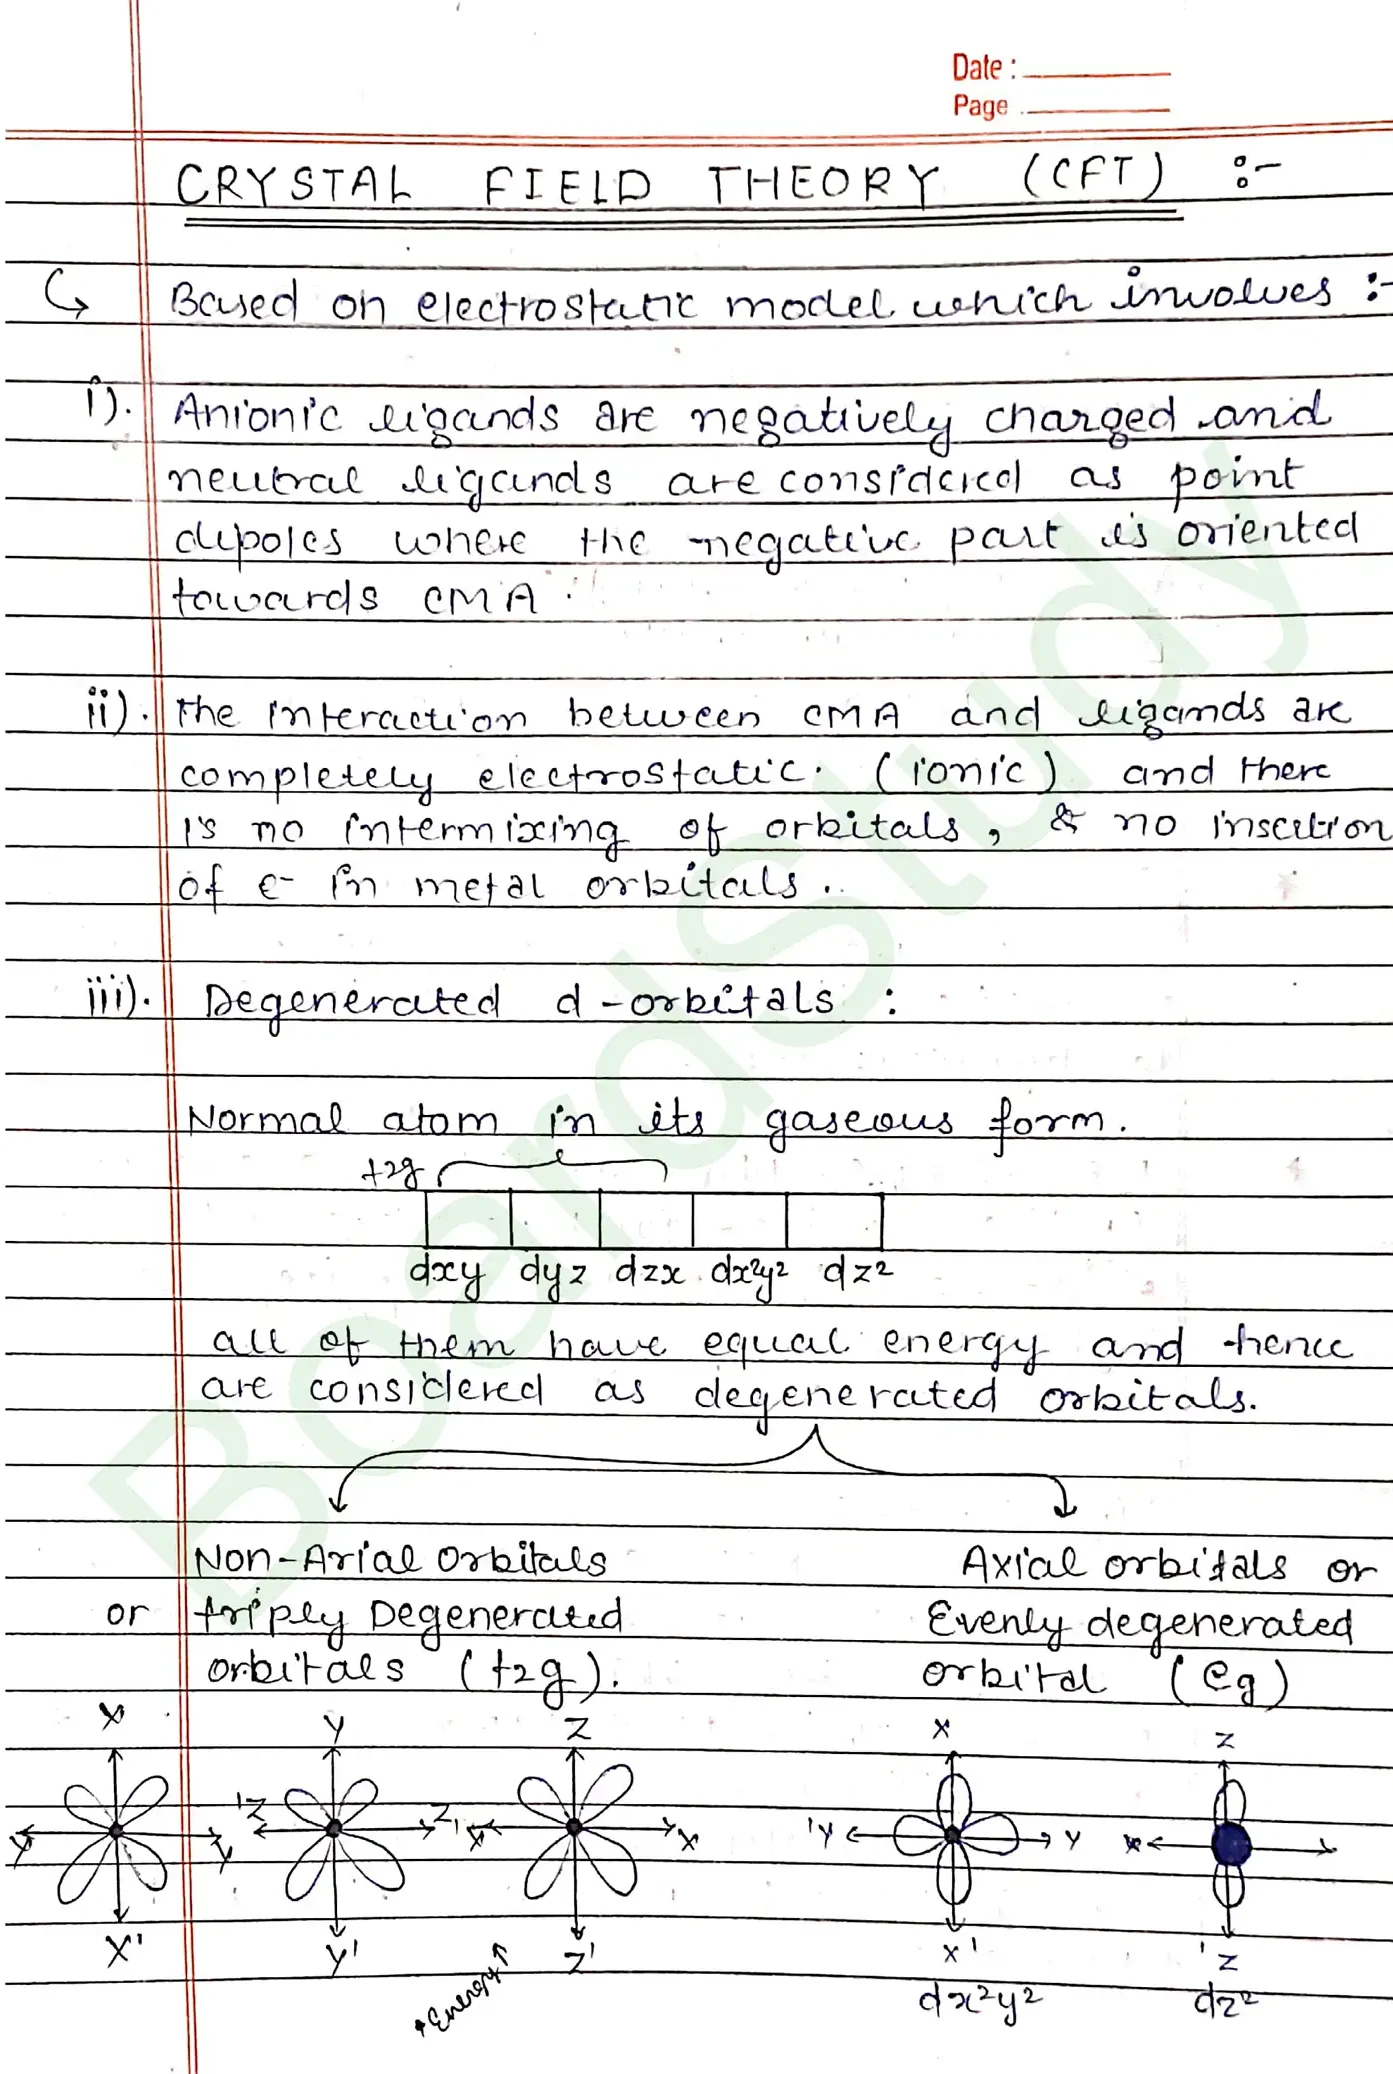 Date :
Page
CRYSTAL FIELD THEORY (CFT) :-
↳ Based on electrostatic model which involves :-
i). Anionic ligands are negatively charged and
neutral ligands are considered as point
dipoles where the negative part is oriented
towards CMA.
ii). The interaction between CMA and ligands are
completely electrostatic. (ionic) and there
is no intermixing of orbitals, & no insertion
of e- in metal orbitals.
iii). Degenerated d-orbitals :
Normal atom in its gaseous form.
t2g
dxy dyz dzx dx²y² dz²
all of them have equal energy and hence
are considered as degenerated orbitals.
Non-Axial Orbitals Axial orbitals or
or triply Degenerated Evenly degenerated
orbitals (t2g). orbital (eg)
X Y Z X Z
Y Y 'Z Z X' X 'Y Y X
X' Y' Z' X' 'Z
Energy↑ dx²y² dz²
BoardStudy